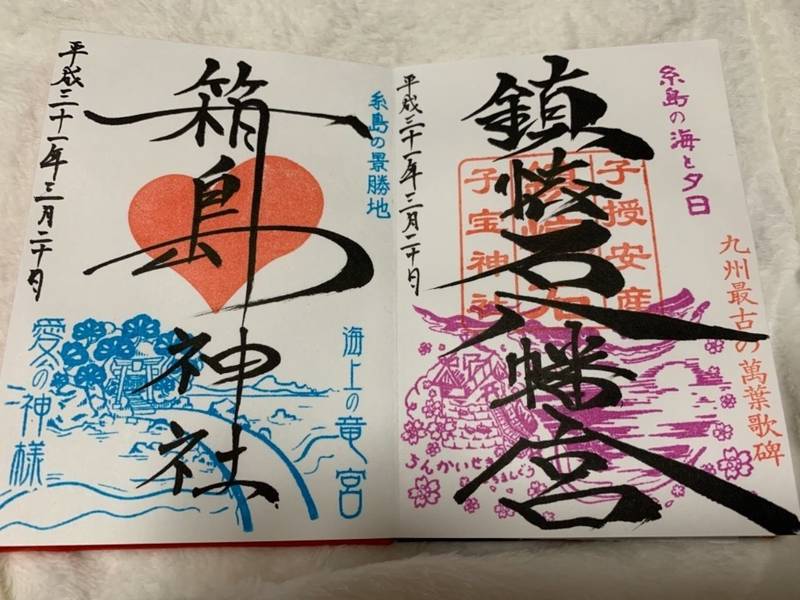 糸島の海と夕日
九州最古の萬葉歌碑
子授安産
鎮懐石
子宝神社
鎮懐石八幡宮
ちんかいせき
平成三十一年三月二十日
糸島の景勝地
海上の竜宮
箱島神社
愛の神様
平成三十一年三月二十日